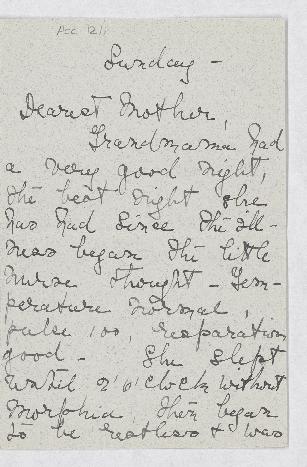 Acc. 12/1
Sunday –
Dearest Mother,
Grandmama had
a very good night,
the best night she
has had since the ill-
ness began the little
nurse thought – Tem-
perature normal,
pulse 100, resparation
good – She slept
until 2 o'clock without
Morphia, then began
to be restless & was